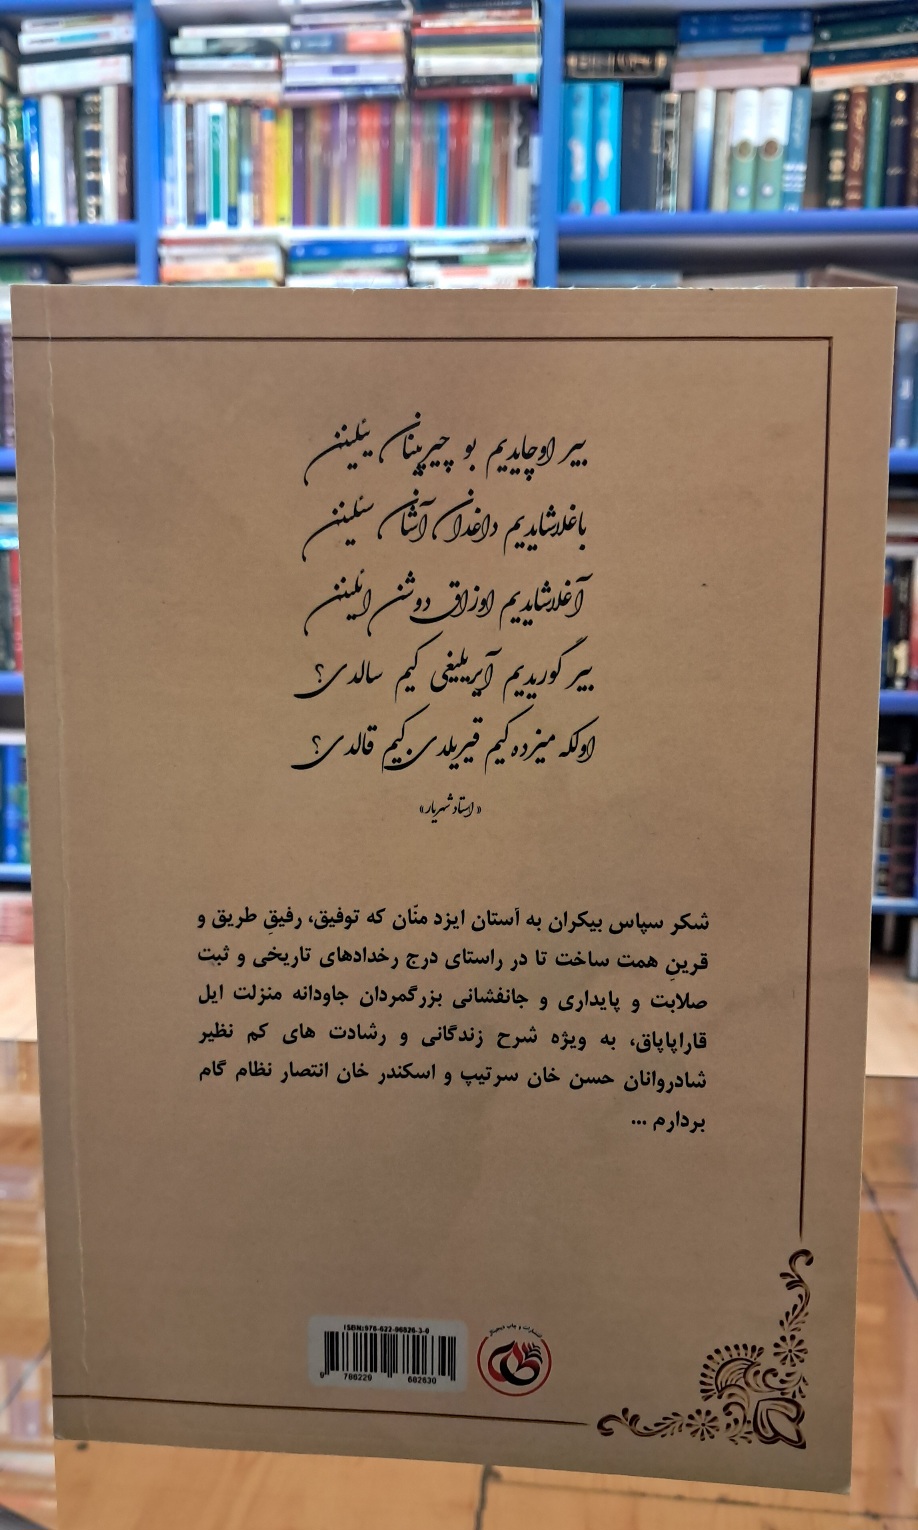 بیر اوچایدیم بو چیرپینان یئلینن
باغلاشایدیم داغدان آشان سئلینن
آغلاشایدیم اوزاق دوشن ائلینن
بیر گوریدیم آیریلیغی کیم سالدی؟
اولکه میزده کیم قیریلدی کیم قالدی؟
«استاد شهریار»
شکر سپاس بیکران به آستان ایزد منّان که توفیق، رفیقِ طریق و
قرینِ همت ساخت تا در راستای درج رخدادهای تاریخی و ثبت
صلابت و پایداری و جانفشانی بزرگمردان جاودانه منزلت ایل
قاراپاپاق، به ویژه شرح زندگانی و رشادت های کم نظیر
شادروانان حسن خان سرتیپ و اسکندر خان انتصار نظام گام
بردارم ...
ISBN:978-622-96826-3-0
9 786229 682630
انتشارات و چاپ دیجیتال